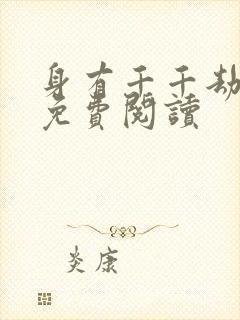 身有千千劫
免費閱讀
炎康